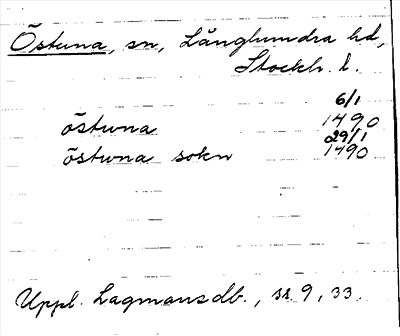 Östuna, sn, Långhundra hd,
Stockh. l.
6/1
östuna 1490
29/1
östuna sokn 1490
Uppl. Lagmansdb., ss. 9, 33.